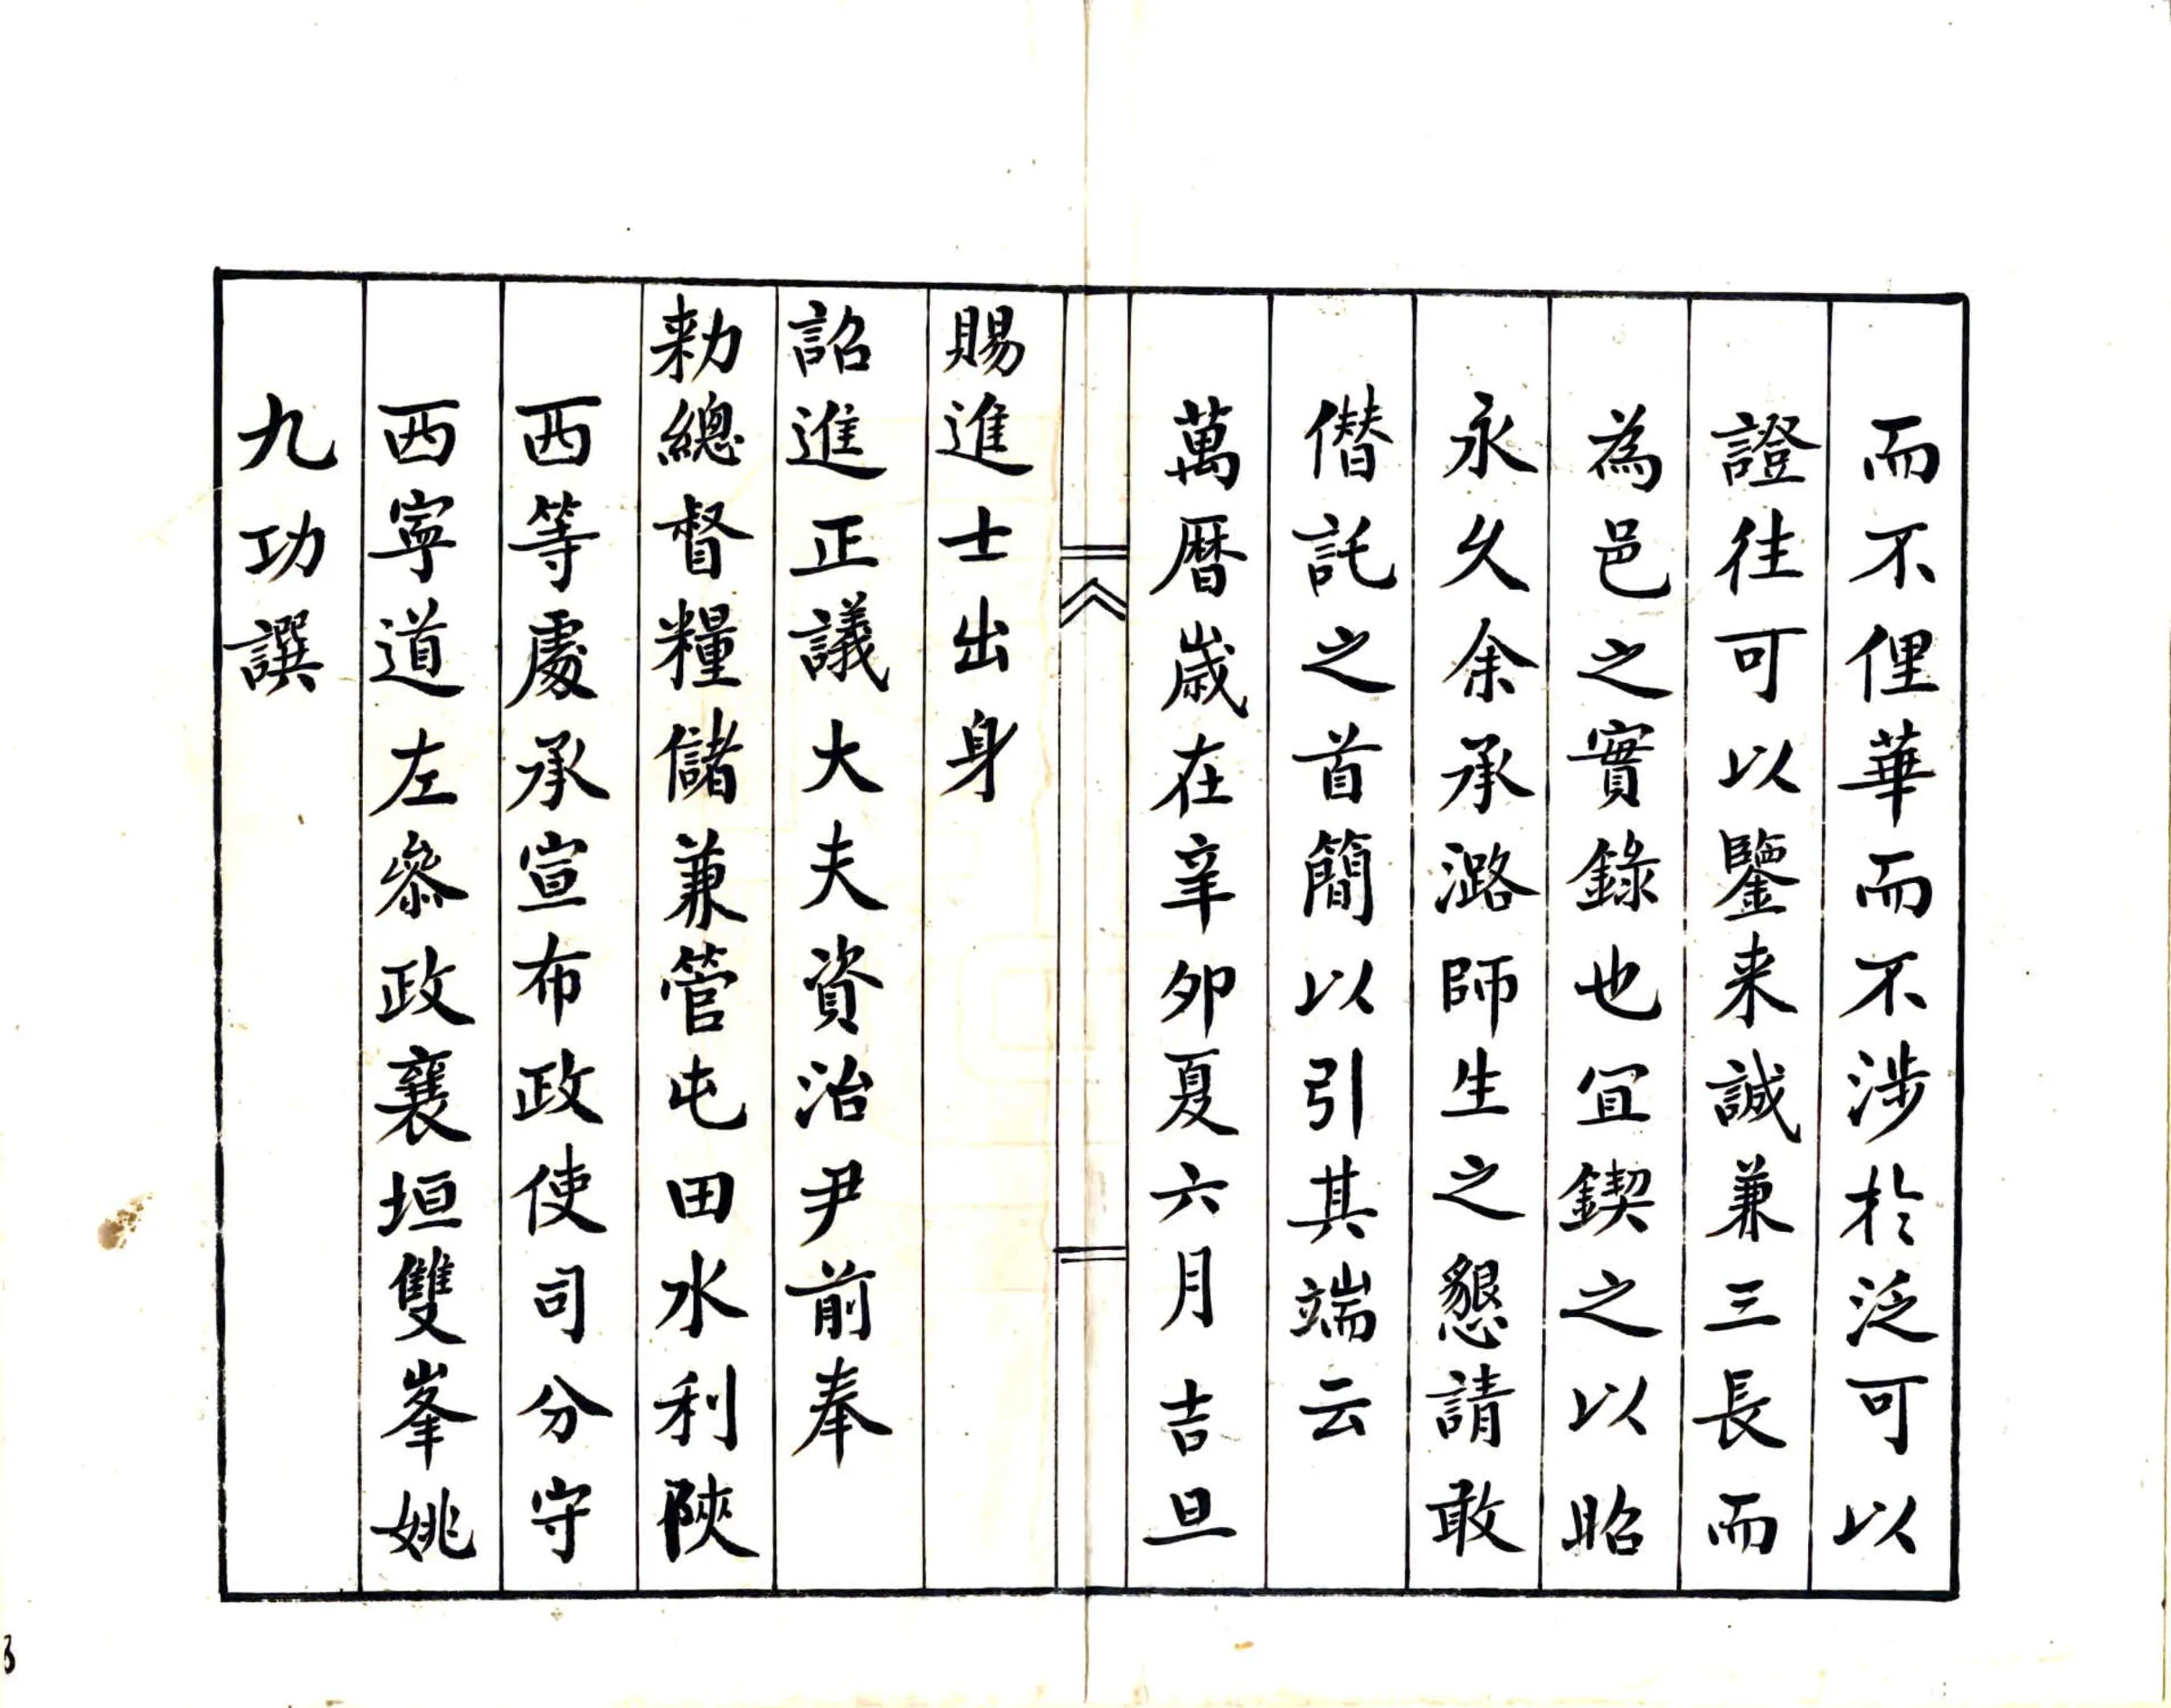 而不俚華而不涉於泛可以
證往可以鑒来誠兼三長而
為邑之實錄也宜鍥之以昭
永久余承潞師生之懇請敢
僭託之首簡以引其端云
萬曆歲在辛卯夏六月吉旦
賜進士出身
詔進正議大夫資治尹前奉
勑總督糧儲兼管屯田水利陜
西等處承宣布政使司分守
西寧道左叅政襄垣雙峯姚
九功譔